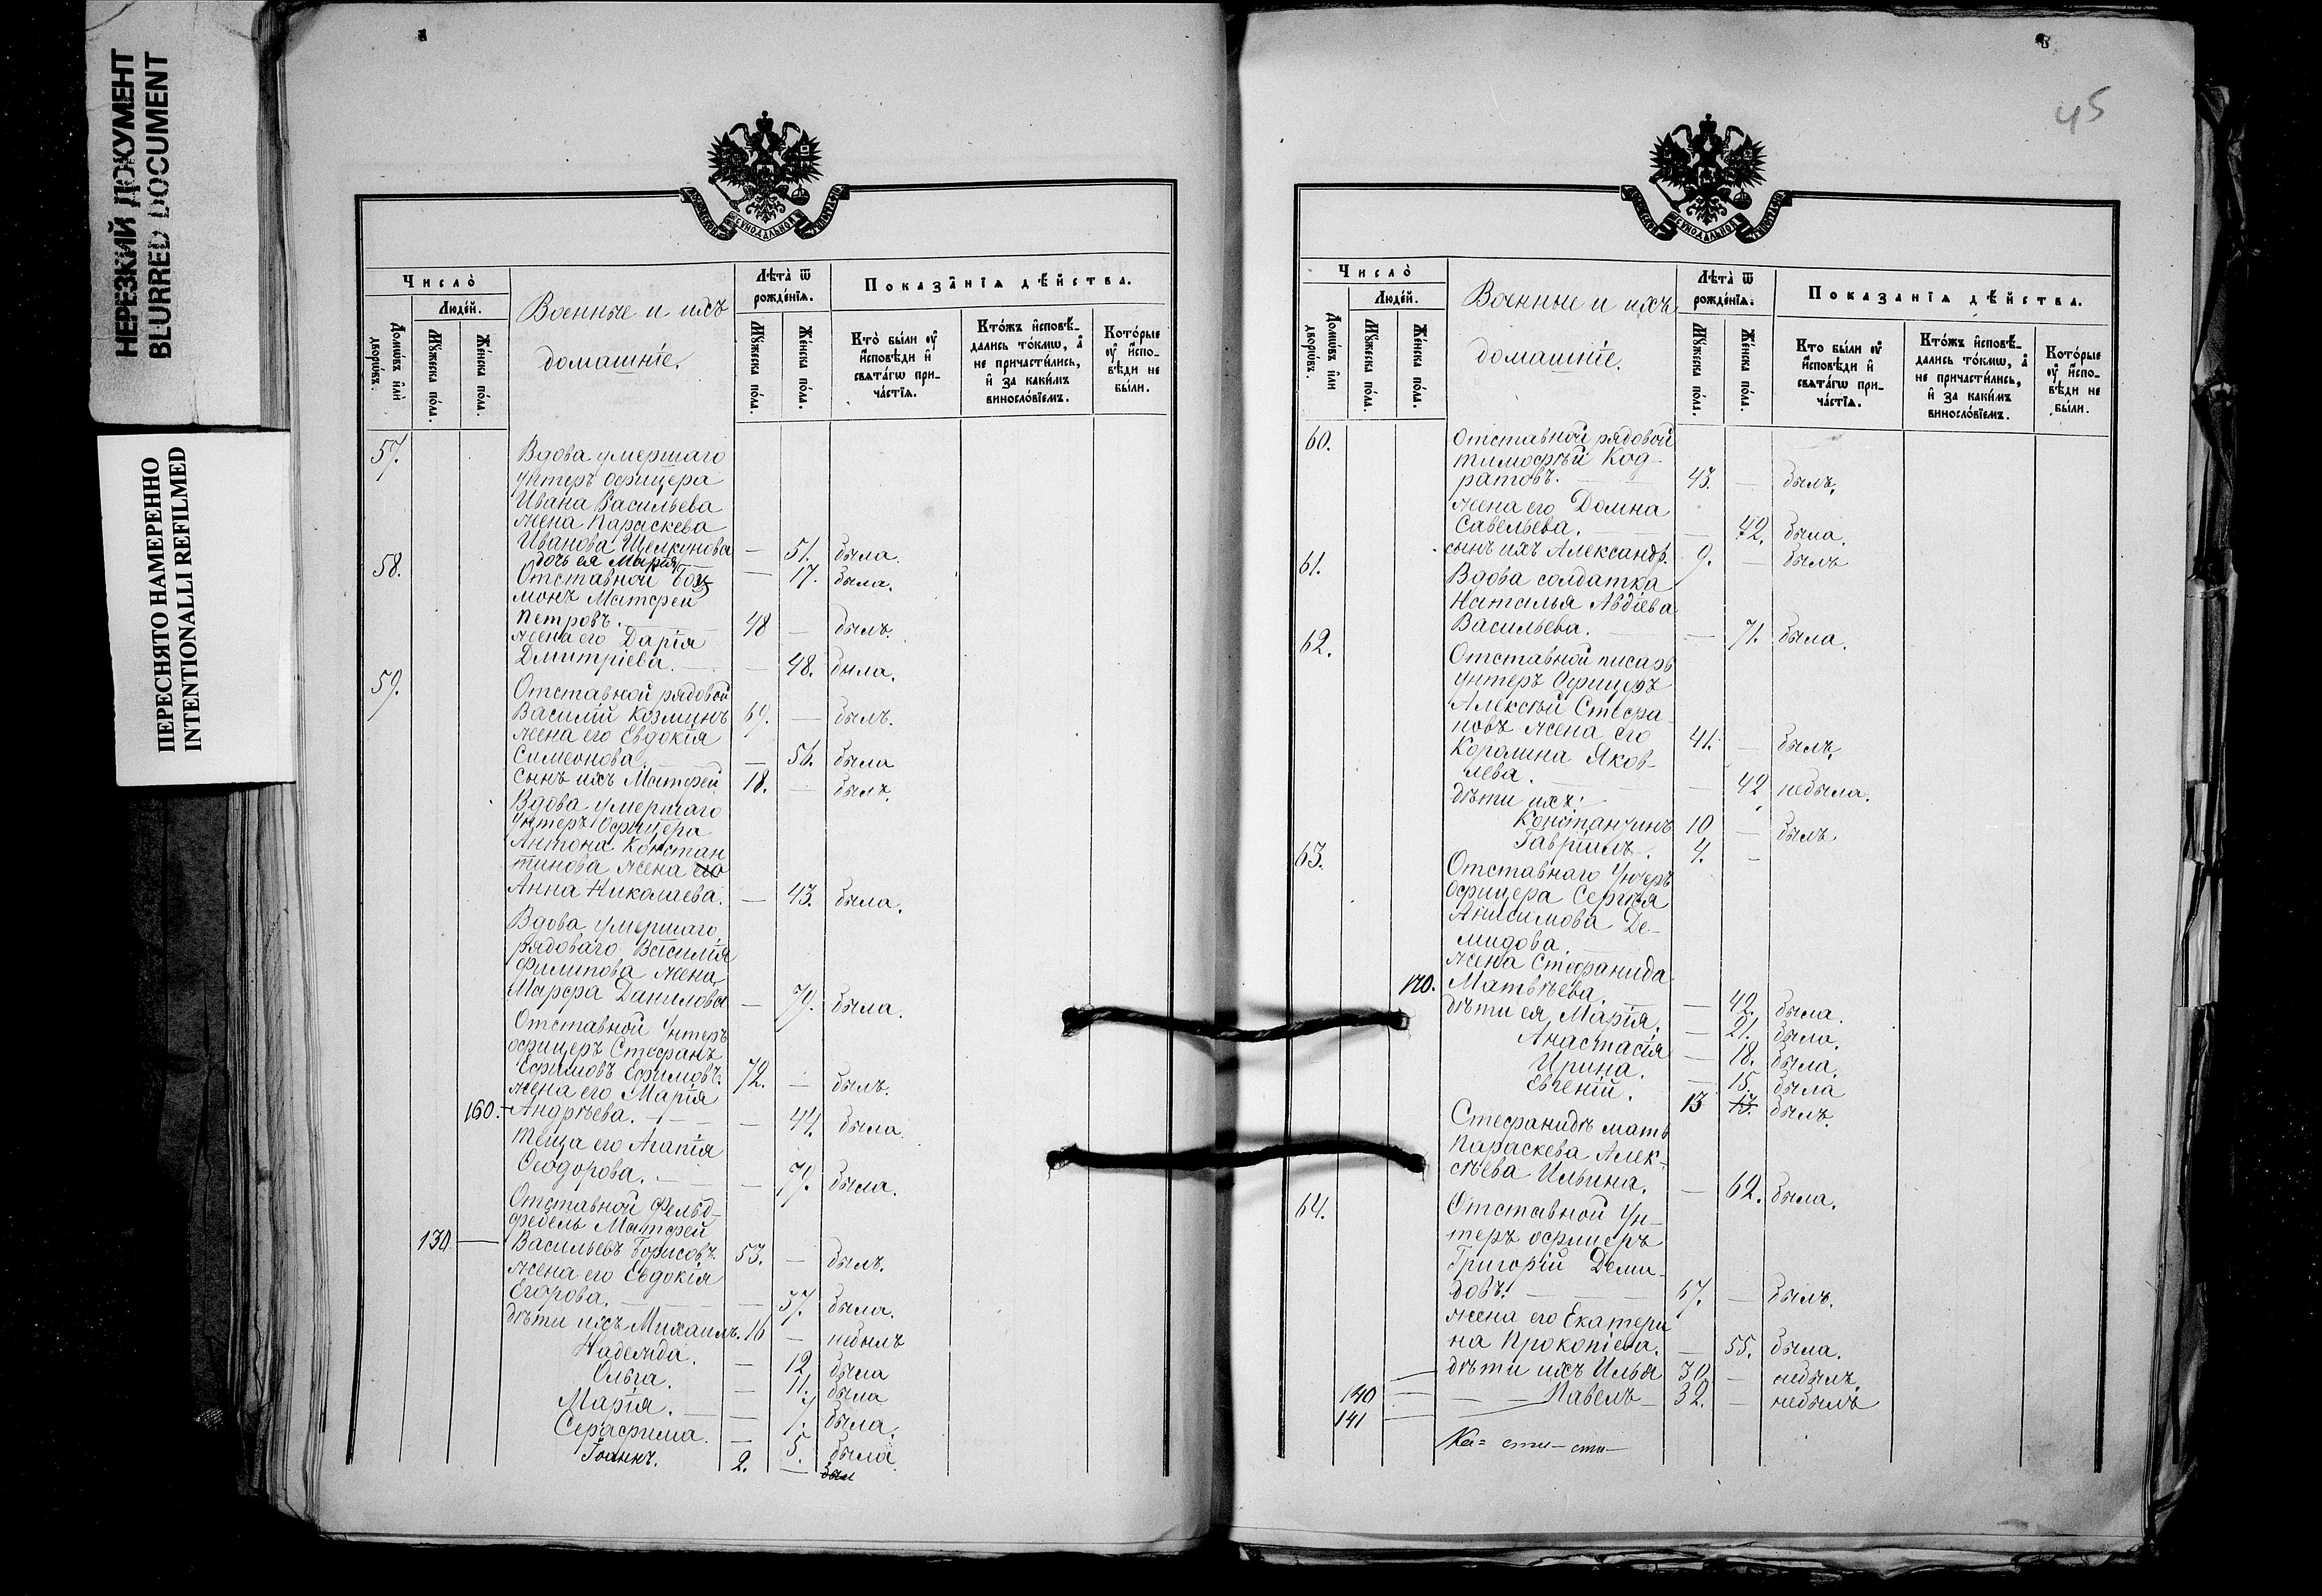 НЕРЕЗКИЙ ДОКУМЕНТ
BLURRED DOCUMENT
ПЕРЕСНЯТО НАМЕРЕННО
INTENTIONALLI REFILMED
Число̀
Люде́й.
Домѡ́въ и҆лѝ дворѡ́въ.
Мꙋ́жеска по́ла.
Же́нска по́ла.
Военные и ихъ
домашніе.
Лѣта̀ ѿ
рожде́нїѧ.
Мꙋ́жеска по́ла.
Же́нска по́ла.
Показа̑нїѧ дѣ́йства.
Кто̀ бы́ли ᲂу҆
и҆сповѣди и҆
свѧта́гѡ при-
ча́стїѧ.
Кто́жъ и҆сповѣ́-
дались то́кмѡ, а҆
не причасти́лись,
и҆ за каки́мъ
винослѡ́вїемъ.
Кото́рые
ᲂу҆ и҆спо-
вѣди не
бы́ли.
57. Вдова умершаго
унтеръ офицера
Ивана Васильева
жена Параскева
Иванова Щелкунова — 51. была.
дочь ея Марія — 17. была.
58. Отставной Боц-
монъ Матфей
Петровъ. 48 — былъ.
жена его Дарія
Дмитріева. — 48. была.
59. Отставной рядовой
Василій Козминъ 69. — былъ.
жена его Евдокія
Симеонова. — 56. была
сынъ ихъ Матфей 18. — былъ.
Вдова умершаго
Унтеръ Офицера
Антона Констан
тинова жена его
Анна Николаева. — 43. была.
Вдова умершаго
рядоваго Василія
Филипова жена
Марфа Данилова — 79. была.
Отставной Унтеръ
офицеръ Стефанъ
Ефимовъ Ефимовъ. 72. — былъ.
жена его Марія
160. Андрѣева. — 44. была.
теща его Агапія
Ѳеодорова. — 79. была.
Отставной Фельд-
фебель Матфей
130. — Васильевъ Борисовъ. 53. — былъ.
жена его Евдокія
Егорова. — 37. была.
дѣти ихъ Михаилъ. 16 — небылъ
Надежда. — 12 была
Ольга. — 11. была
Марія. — 7. была.
Серафима. — 5. была
Іоаннъ. 2. — был
45
Число̀
Люде́й.
Домѡ́въ и҆лѝ дворѡ́въ.
Мꙋ́жеска по́ла.
Же́нска по́ла.
Военные и ихъ
домашніе.
Лѣта̀ ѿ
рожде́нїѧ.
Мꙋ́жеска по́ла.
Же́нска по́ла.
Показа̑нїѧ дѣ́йства.
Кто бы́ли ᲂу҆
и҆сповѣди и҆
свѧта́гѡ при-
ча́стїѧ.
Кто́жъ и҆сповѣ́-
дались то́кмѡ, а҆
не причасти́лись,
и҆ за каки́мъ
винослѡ́вїемъ.
Кото́рые
ᲂу҆ и҆спо-
вѣди не
бы́ли.
60. Отставной рядовой
Тимофѣй Код-
ратовъ. 43. — былъ.
жена его Домна
Савельева. — 42. была.
сынъ ихъ Александр. 9. — былъ
61. Вдова солдатка
Наталья Авдіева
Васильева. — 71. была.
62. Отставной писарь
Унтеръ Офицеръ
Алексѣй Стефа-
новъ жена его 41. — былъ.
Королина Яков-
лева. — 42 небыла.
дѣти ихъ:
Константинъ 10 — былъ
Гавріилъ. 4. —
63. Отставнаго Унтеръ
Офицера Сергѣя
Анисимова Де-
мидова.
жена Стефанида
170. Матвѣева. — 42. была.
дѣти ея, Марія. — 21. была.
Анастасія — 18. была.
Ирина. — 15. была
Евгеній. 13 13. былъ.
Стефаниды мать
Параскева Алек-
сѣева Ильина. — 62. была.
64. Отставной Ун-
теръ офицеръ
Григорій Деми-
довъ. 67. — былъ.
жена его Екатери
на Прокопіева. — 55. была.
дѣти ихъ Илья 30. — небылъ
140 — — Павелъ — 32. — небылъ
141